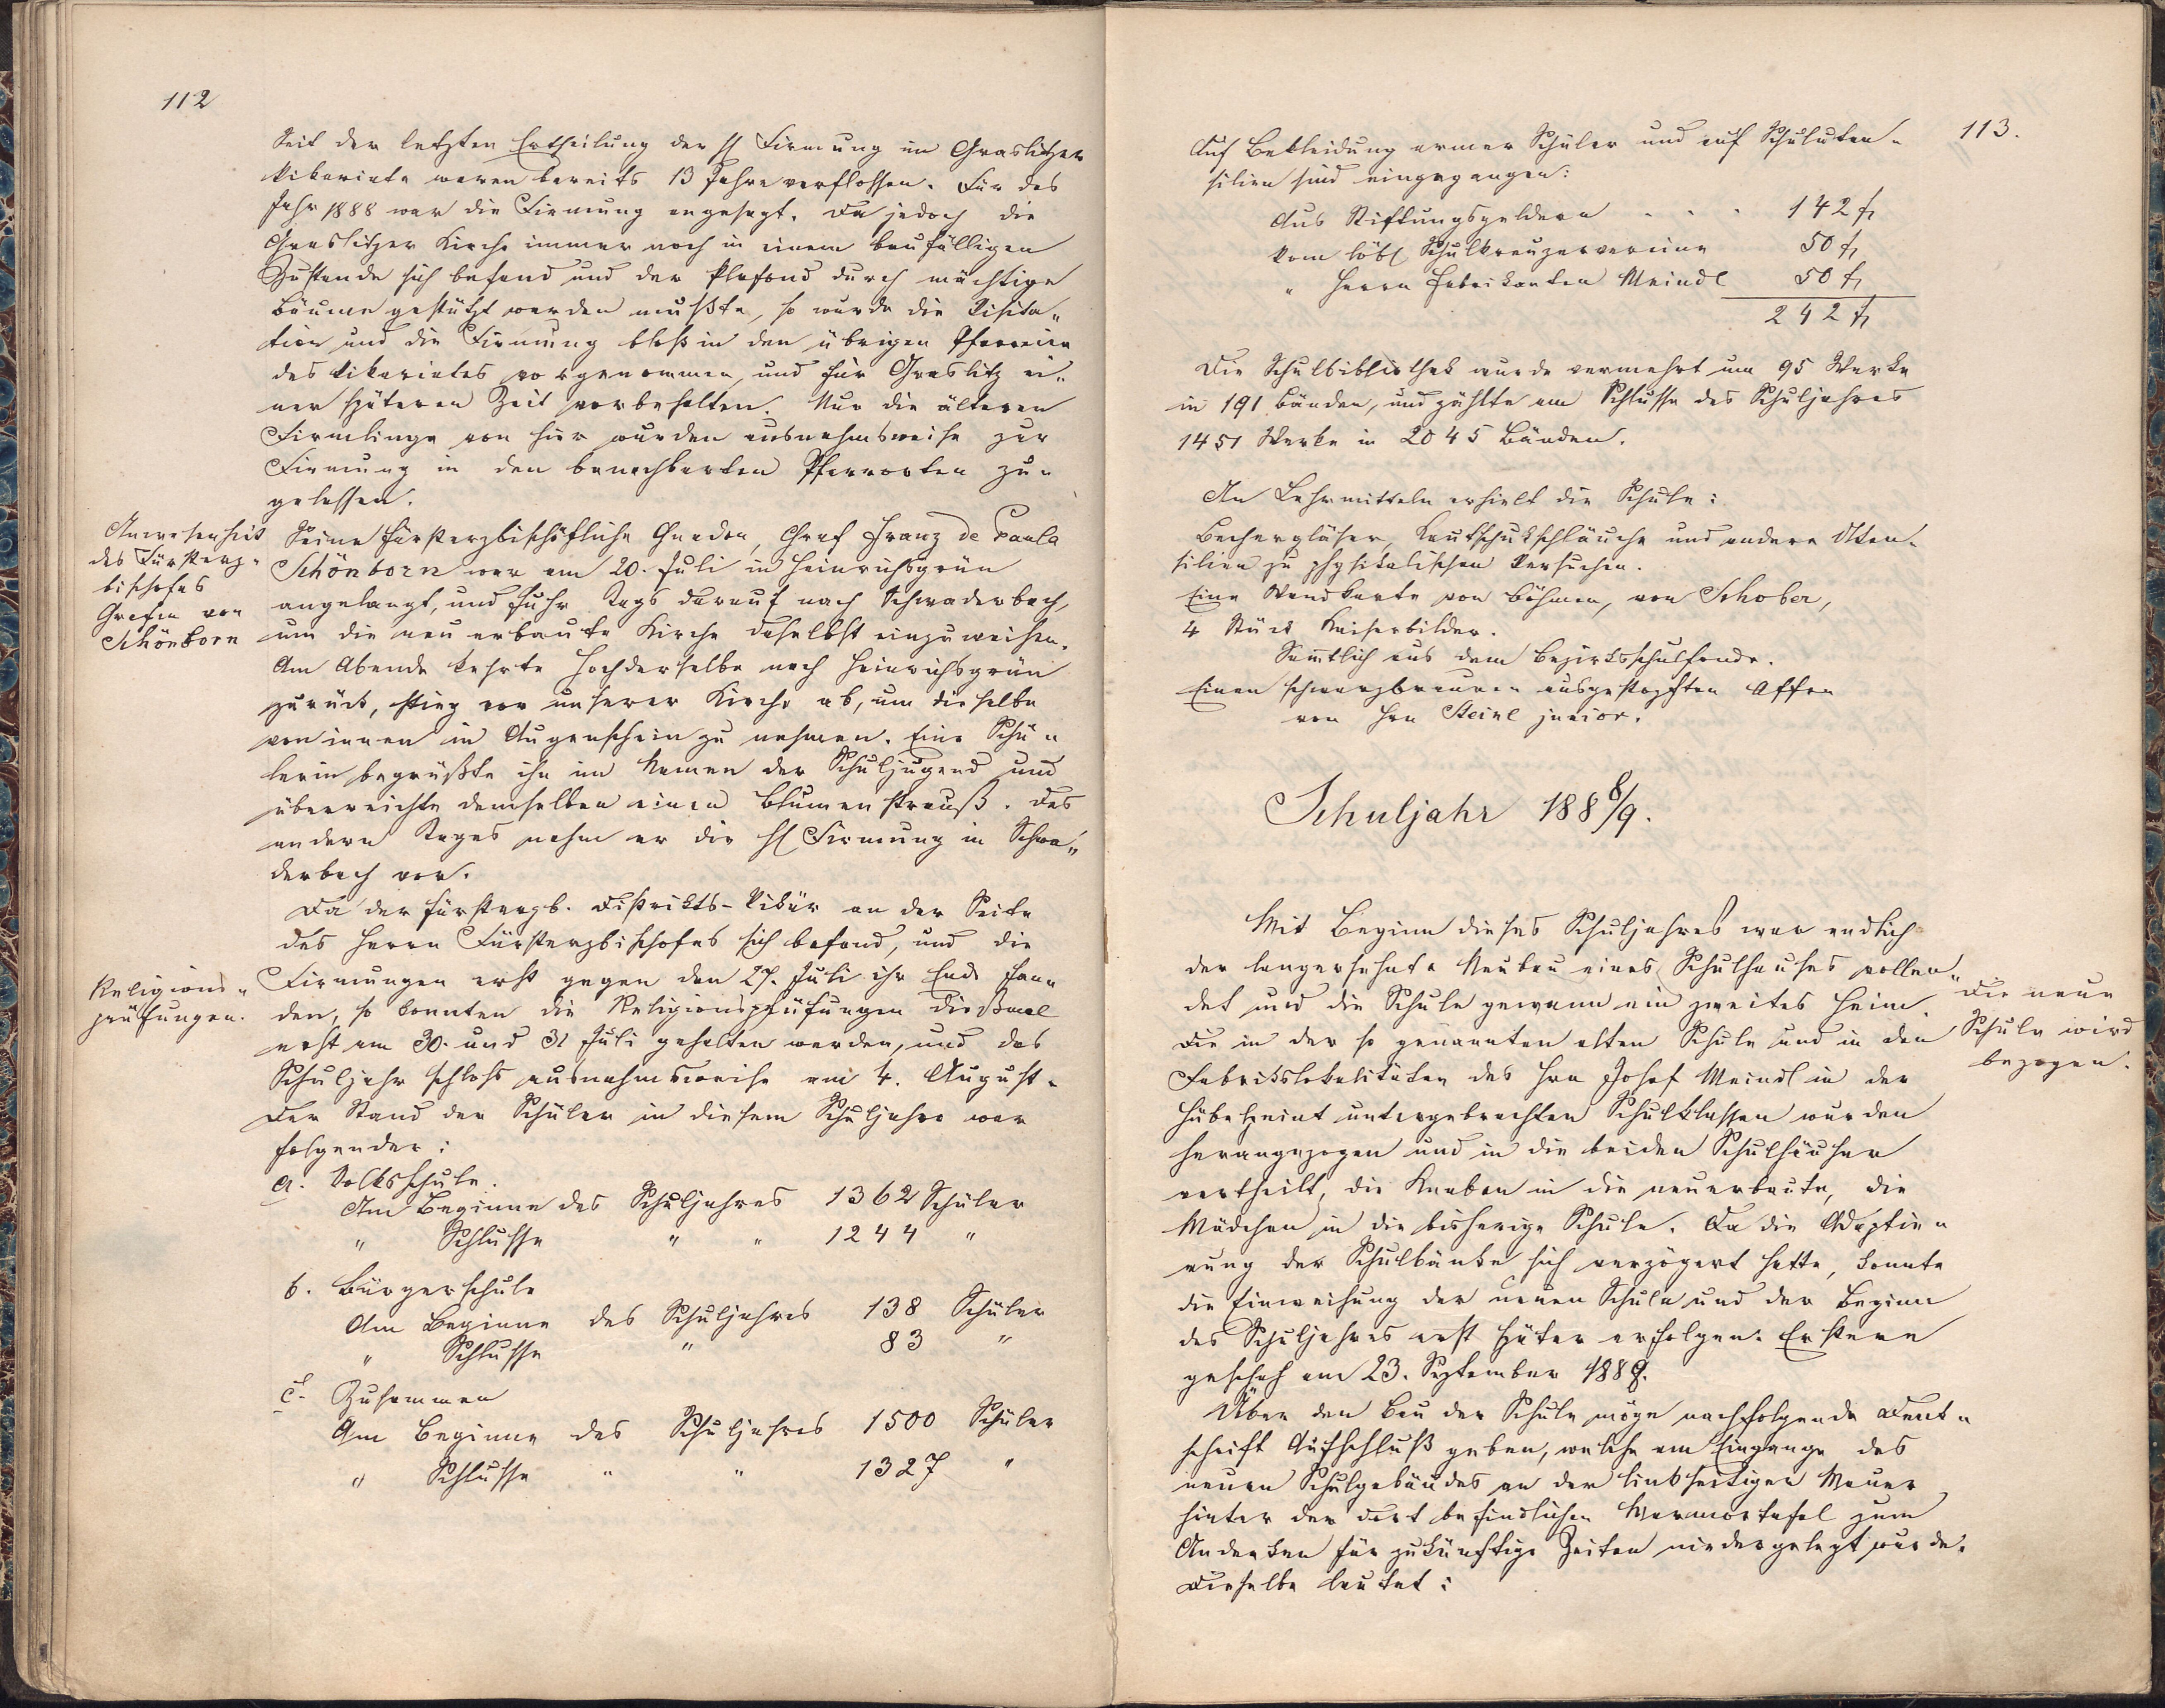 112
Seit der letzten Ertheilung der hl Firmung im Graslitzer
Vikariate waren bereits 13 Jahre verflossen. Für das
Jahr 1888 war die Firmung angesagt. Da jedoch die
Graslitzer Kirche immer noch in einem baufälligen
Zustande sich befand und der Plafond durch mächtige
Bäume gestützt werden mußte, so wurde die Visita„
tion und die Firmung bloß in den übrigen Pfarreien
des Vikariates vorgenommen, und für Graslitz ei„
ner späteren Zeit vorbehalten. Nur die älteren
Firmlinge von hier wurden ausnahmsweise zur
Firmung in den benachbarten Pfarrorten zu„
gelassen.
Anwesenheit
des Fürsterz„
bischofes
Grafen von
Schönborn
Seine fürsterzbischöfliche Gnaden, Graf Franz de Paula
Schönborn war am 20. Juli in Heinrichsgrün
angelangt, und fuhr Tags darauf nach Schwaderbach,
um die neu erbaute Kirche daselbst einzuweihen.
Am Abende kehrte Hochderselbe nach Heinrichsgrün
zurück, stieg vor unserer Kirche ab, um dieselbe
von innen in Augenschein zu nehmen. Eine Schü„
lerin begrüßte ihn im Namen der Schuljugend und
überreichte demselben einen Blumenstrauß. Des
andern Tages nahm er die hl Firmung in Schwa„
derbach vor.
Da der fürsterzb. Distrikts-Vikär an der Seite
des Herrn Fürsterzbischofes sich befand, und die
Religions„
prüfungen.
Firmungen erst gegen den 27. Juli ihr Ende fan„
den, so konnten die Religionsprüfungen dießmal
erst am 30. und 31 Juli gehalten werden, und das
Schuljahr schloß ausnahmsweise am 4. August.
Der Stand der Schüler in diesem Schuljahre war
folgender:
a. Volksschule.
Am Beginne des Schuljahres 1362 Schüler
„ Schlusse „ „ 1244 „
b. Bürgerschule
Am Beginne des Schuljahres 138 Schüler
„ Schlusse „ 83 „
c. Zusammen
Am Beginne des Schuljahres 1500 Schüler
„ Schlusse „ „ 1327 „
113.
Auf Bekleidung armer Schüler und auf Schuluten„
silien sind eingegangen:
Aus Stiftungsgeldern . . . 142 fl
Vom löbl Schulkreuzervereine 50 fl
„ Herrn Fabrikanten Meindl 50 fl
242 fl
Die Schulbibliothek wurde vermehrt um 95 Werke
in 191 Bänden, und zählte am Schlusse des Schuljahres
1451 Werke in 2045 Bänden.
An Lehrmitteln erhielt die Schule:
Bechergläser, Kautschukschläuche und andere Uten„
silien zu physikalischen Versuchen.
Eine Wandkarte von Böhmen, von Schober,
4 Stück Kaiserbilder.
Sämtlich aus dem Bezirksschulfonde.
Einen schwarzbraunen ausgestopften Affen
von Hrn Steinl junior.
Schuljahr 188 8/9.
Mit Beginn dieses Schuljahres war endlich
der langersehnte Neubau eines Schulhauses vollen„
det und die Schule gewann ein zweites Heim.
Die neue
Schule wird
bezogen.
Die in der so genannten alten Schule und in den
Fabrikslokalitäten des Hrn Josef Meindl in der
Hübe heint untergebrachten Schulklassen wurden
herangezogen und in die beiden Schulhäuser
vertheilt, die Knaben in die neuerbaute, die
Mädchen in die bisherige Schule. Da die Adaptie„
rung der Schulbänke sich verzögert hatte, konnte
die Einweihung der neuen Schule und der Beginn
des Schuljahres erst später erfolgen. Erstere
geschah am 23. September 1888.
Über den Bau der Schule möge nachfolgende Denk„
schrift Aufschluß geben, welche am Eingange des
neuen Schulgebäudes an der linkseitigen Mauer
hinter der dort befindlichen Marmortafel zum
Andenken für zukünftige Zeiten niedergelegt wurde.
Dieselbe lautet: